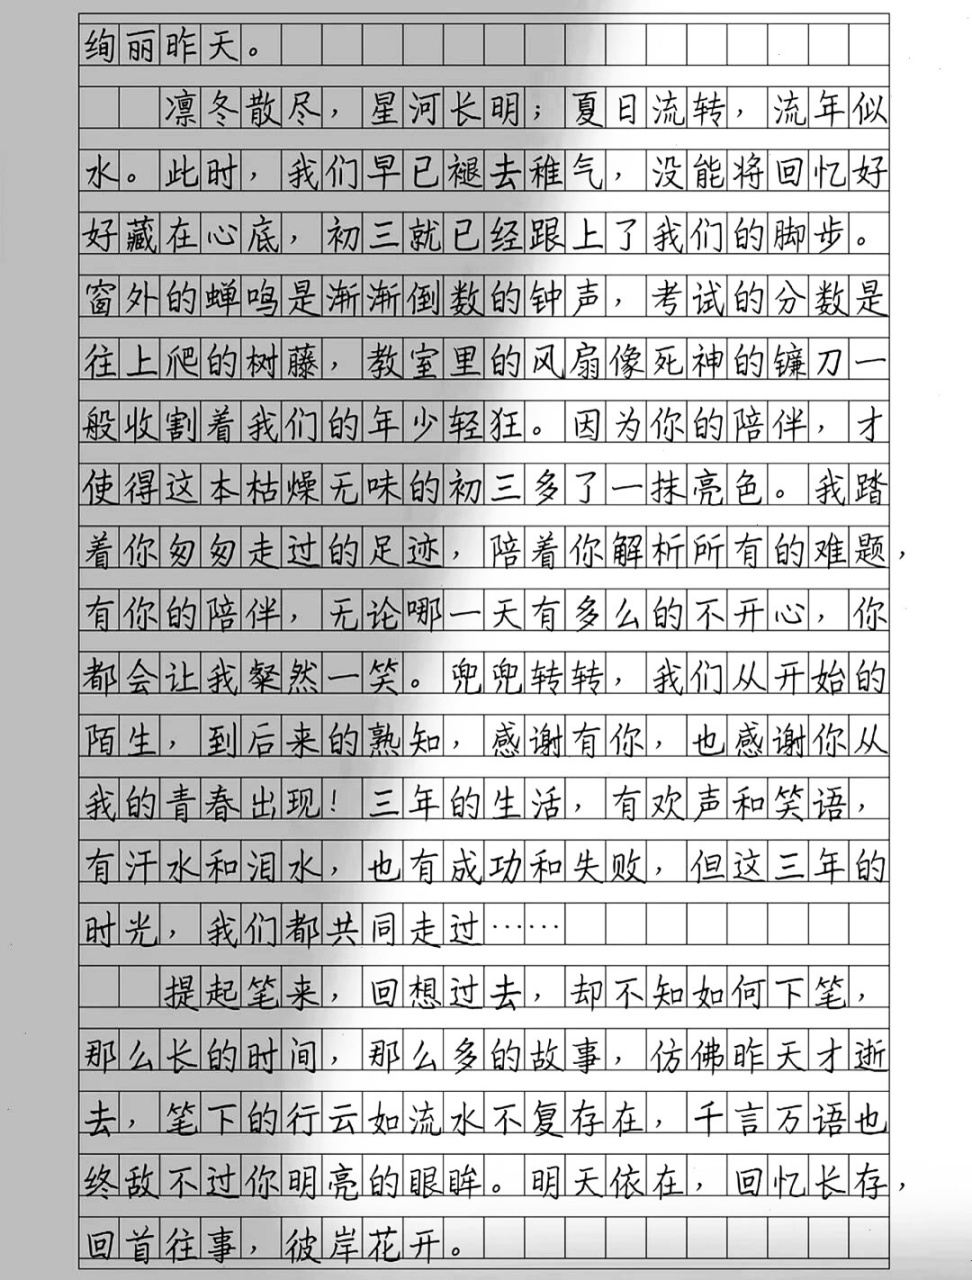 绚丽昨天。
凛冬散尽，星河长明；夏日流转，流年似
水。此时，我们早已褪去稚气，没能将回忆好
好藏在心底，初三就已经跟上了我们的脚步。
窗外的蝉鸣是渐渐倒数的钟声，考试的分数是
往上爬的树藤，教室里的风扇像死神的镰刀一
般收割着我们的年少轻狂。因为你的陪伴，才
使得这本枯燥无味的初三多了一抹亮色。我踏
着你匆匆走过的足迹，陪着你解析所有的难题，
有你的陪伴，无论哪一天有多么的不开心，你
都会让我粲然一笑。兜兜转转，我们从开始的
陌生，到后来的熟知，感谢有你，也感谢你从
我的青春出现！三年的生活，有欢声和笑语，
有汗水和泪水，也有成功和失败，但这三年的
时光，我们都共同走过……
提起笔来，回想过去，却不知如何下笔，
那么长的时间，那么多的故事，仿佛昨天才逝
去，笔下的行云如流水不复存在，千言万语也
终敌不过你明亮的眼眸。明天依在，回忆长存，
回首往事，彼岸花开。